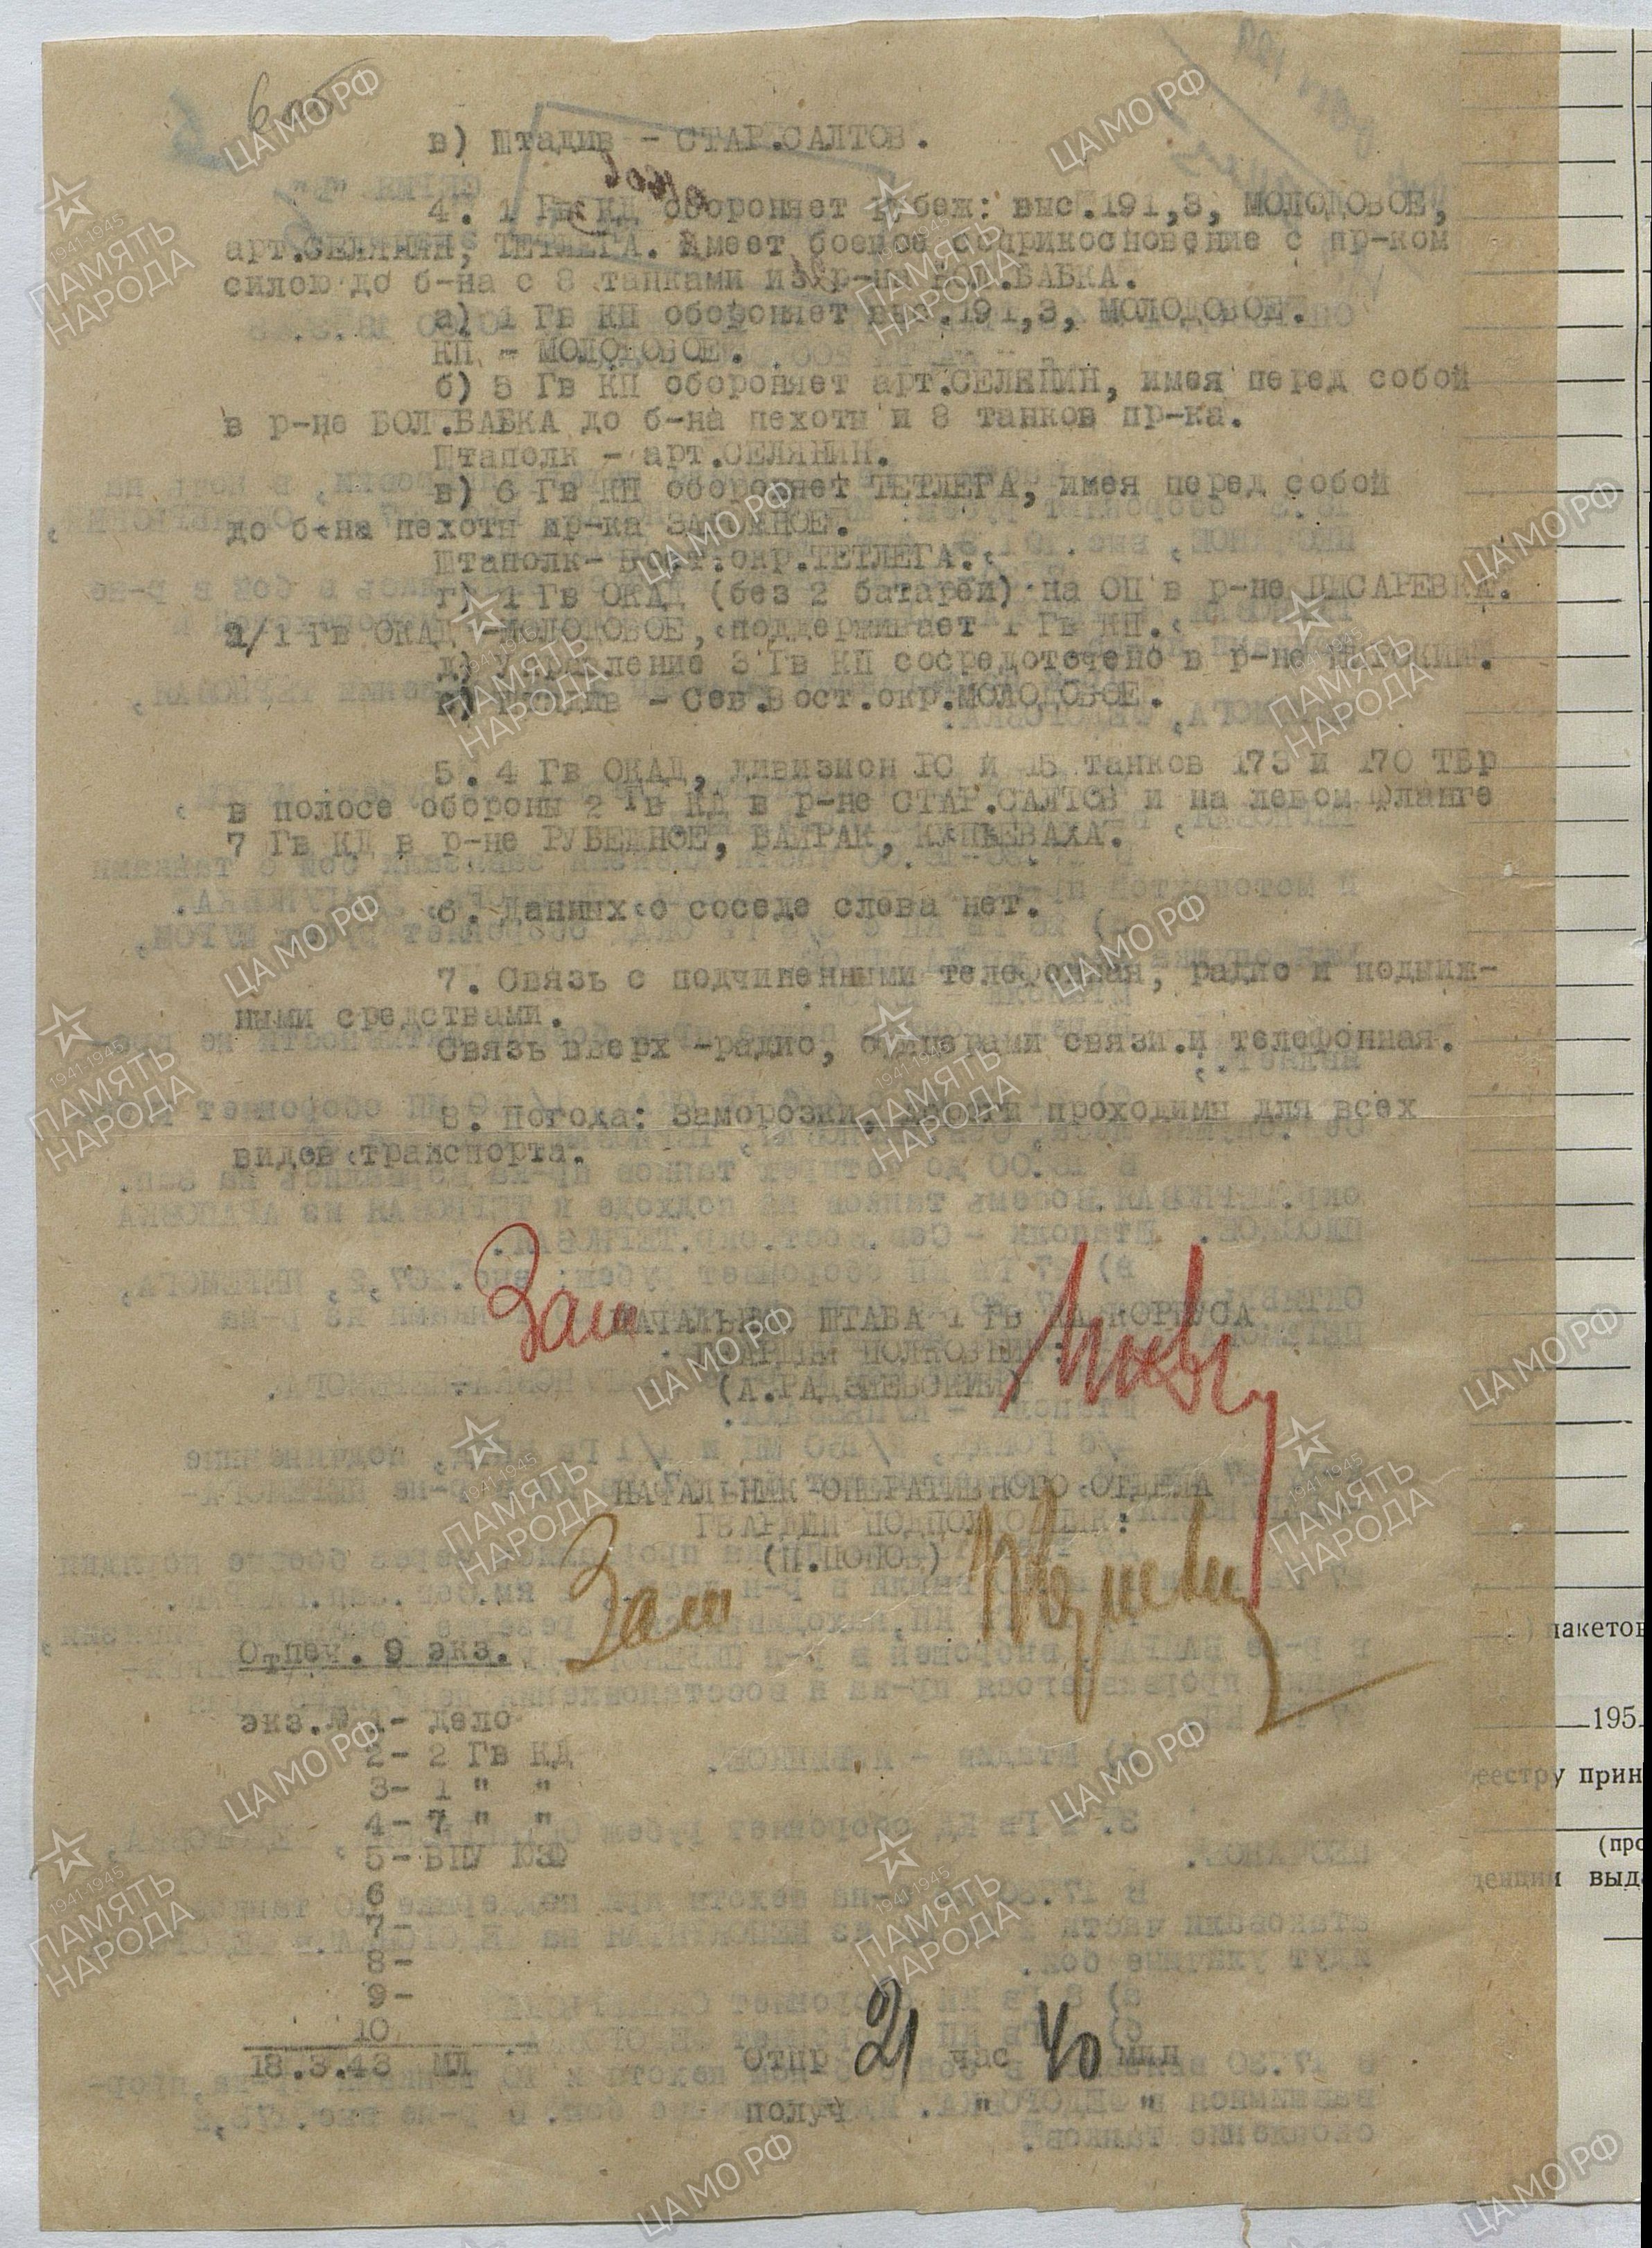 6 об
в) Штадив – СТАР.САЛТОВ.
4. 1 Гв КД обороняет рубеж: выс.191,3, МОЛОДОВОЕ,
арт.СЕЛЯНИН, ТЕТЛЕГА. Имеет боевое соприкосновение с пр-ком
силою до б-на с 8 танками из р-на БОЛ.БАБКА.
а) 1 Гв КП обороняет выс.191,3, МОЛОДОВОЕ.
КП – МОЛОДОВОЕ.
б) 5 Гв КП обороняет арт.СЕЛЯНИН, имея перед собой
в р-не БОЛ.БАБКА до б-на пехоты и 8 танков пр-ка.
Штаполк – арт.СЕЛЯНИН.
в) 6 Гв КП обороняет ТЕТЛЕГА, имея перед собой
до б-на пехоты пр-ка ЗАРОЖНОЕ.
Штаполк – Вост.окр.ТЕТЛЕГА.
г) 1 Гв ОКАД (без 2 батарей) на ОП в р-не ПИСАРЕВКА.
2/1 Гв ОКАД – МОЛОДОВОЕ, поддерживает 1 Гв КП.
д) Управление 3 Гв КП сосредоточено в р-не
е) Штадив – Сев.Вост.окр.МОЛОДОВОЕ.
5. 4 Гв ОКАД, дивизион РС и 15 танков 173 и 170 ТБр
в полосе обороны 2 Гв КД в р-не СТАР.САЛТОВ и на левом фланге
7 Гв КД в р-не РУБЕЖНОЕ, БАЙРАК, КУПЬЕВАХА.
6. Данных о соседе слева нет.
7. Связь с подчиненными телефонная, радио и подвиж-
ными средствами.
Связь вверх – радио, офицерами связи и телефонная.
8. Погода: Заморозки, дороги проходимы для всех
видов транспорта.
Зам НАЧАЛЬНИК ШТАБА 1 ГВ КАВ КОРПУСА
ГВАРДИИ ПОЛКОВНИК:
(А.РАДЗИЕВСКИЙ)
НАЧАЛЬНИК ОПЕРАТИВНОГО ОТДЕЛА
ГВАРДИИ ПОДПОЛКОВНИК:
(П.ПОПОВ)
Зам
Отпеч. 9 экз.
экз.№ 1– дело
2– 2 Гв КД
3– 1 " "
4– 7 " "
5– ВПУ ЮЗФ
6
7–
8–
9–
10
18.3.43 мл
Отпр 21 час 40 мин
получ " "
пакетов
195
реестру прин
(про
денции выда
ЦАМО РФ
1941-1945
ПАМЯТЬ
НАРОДА